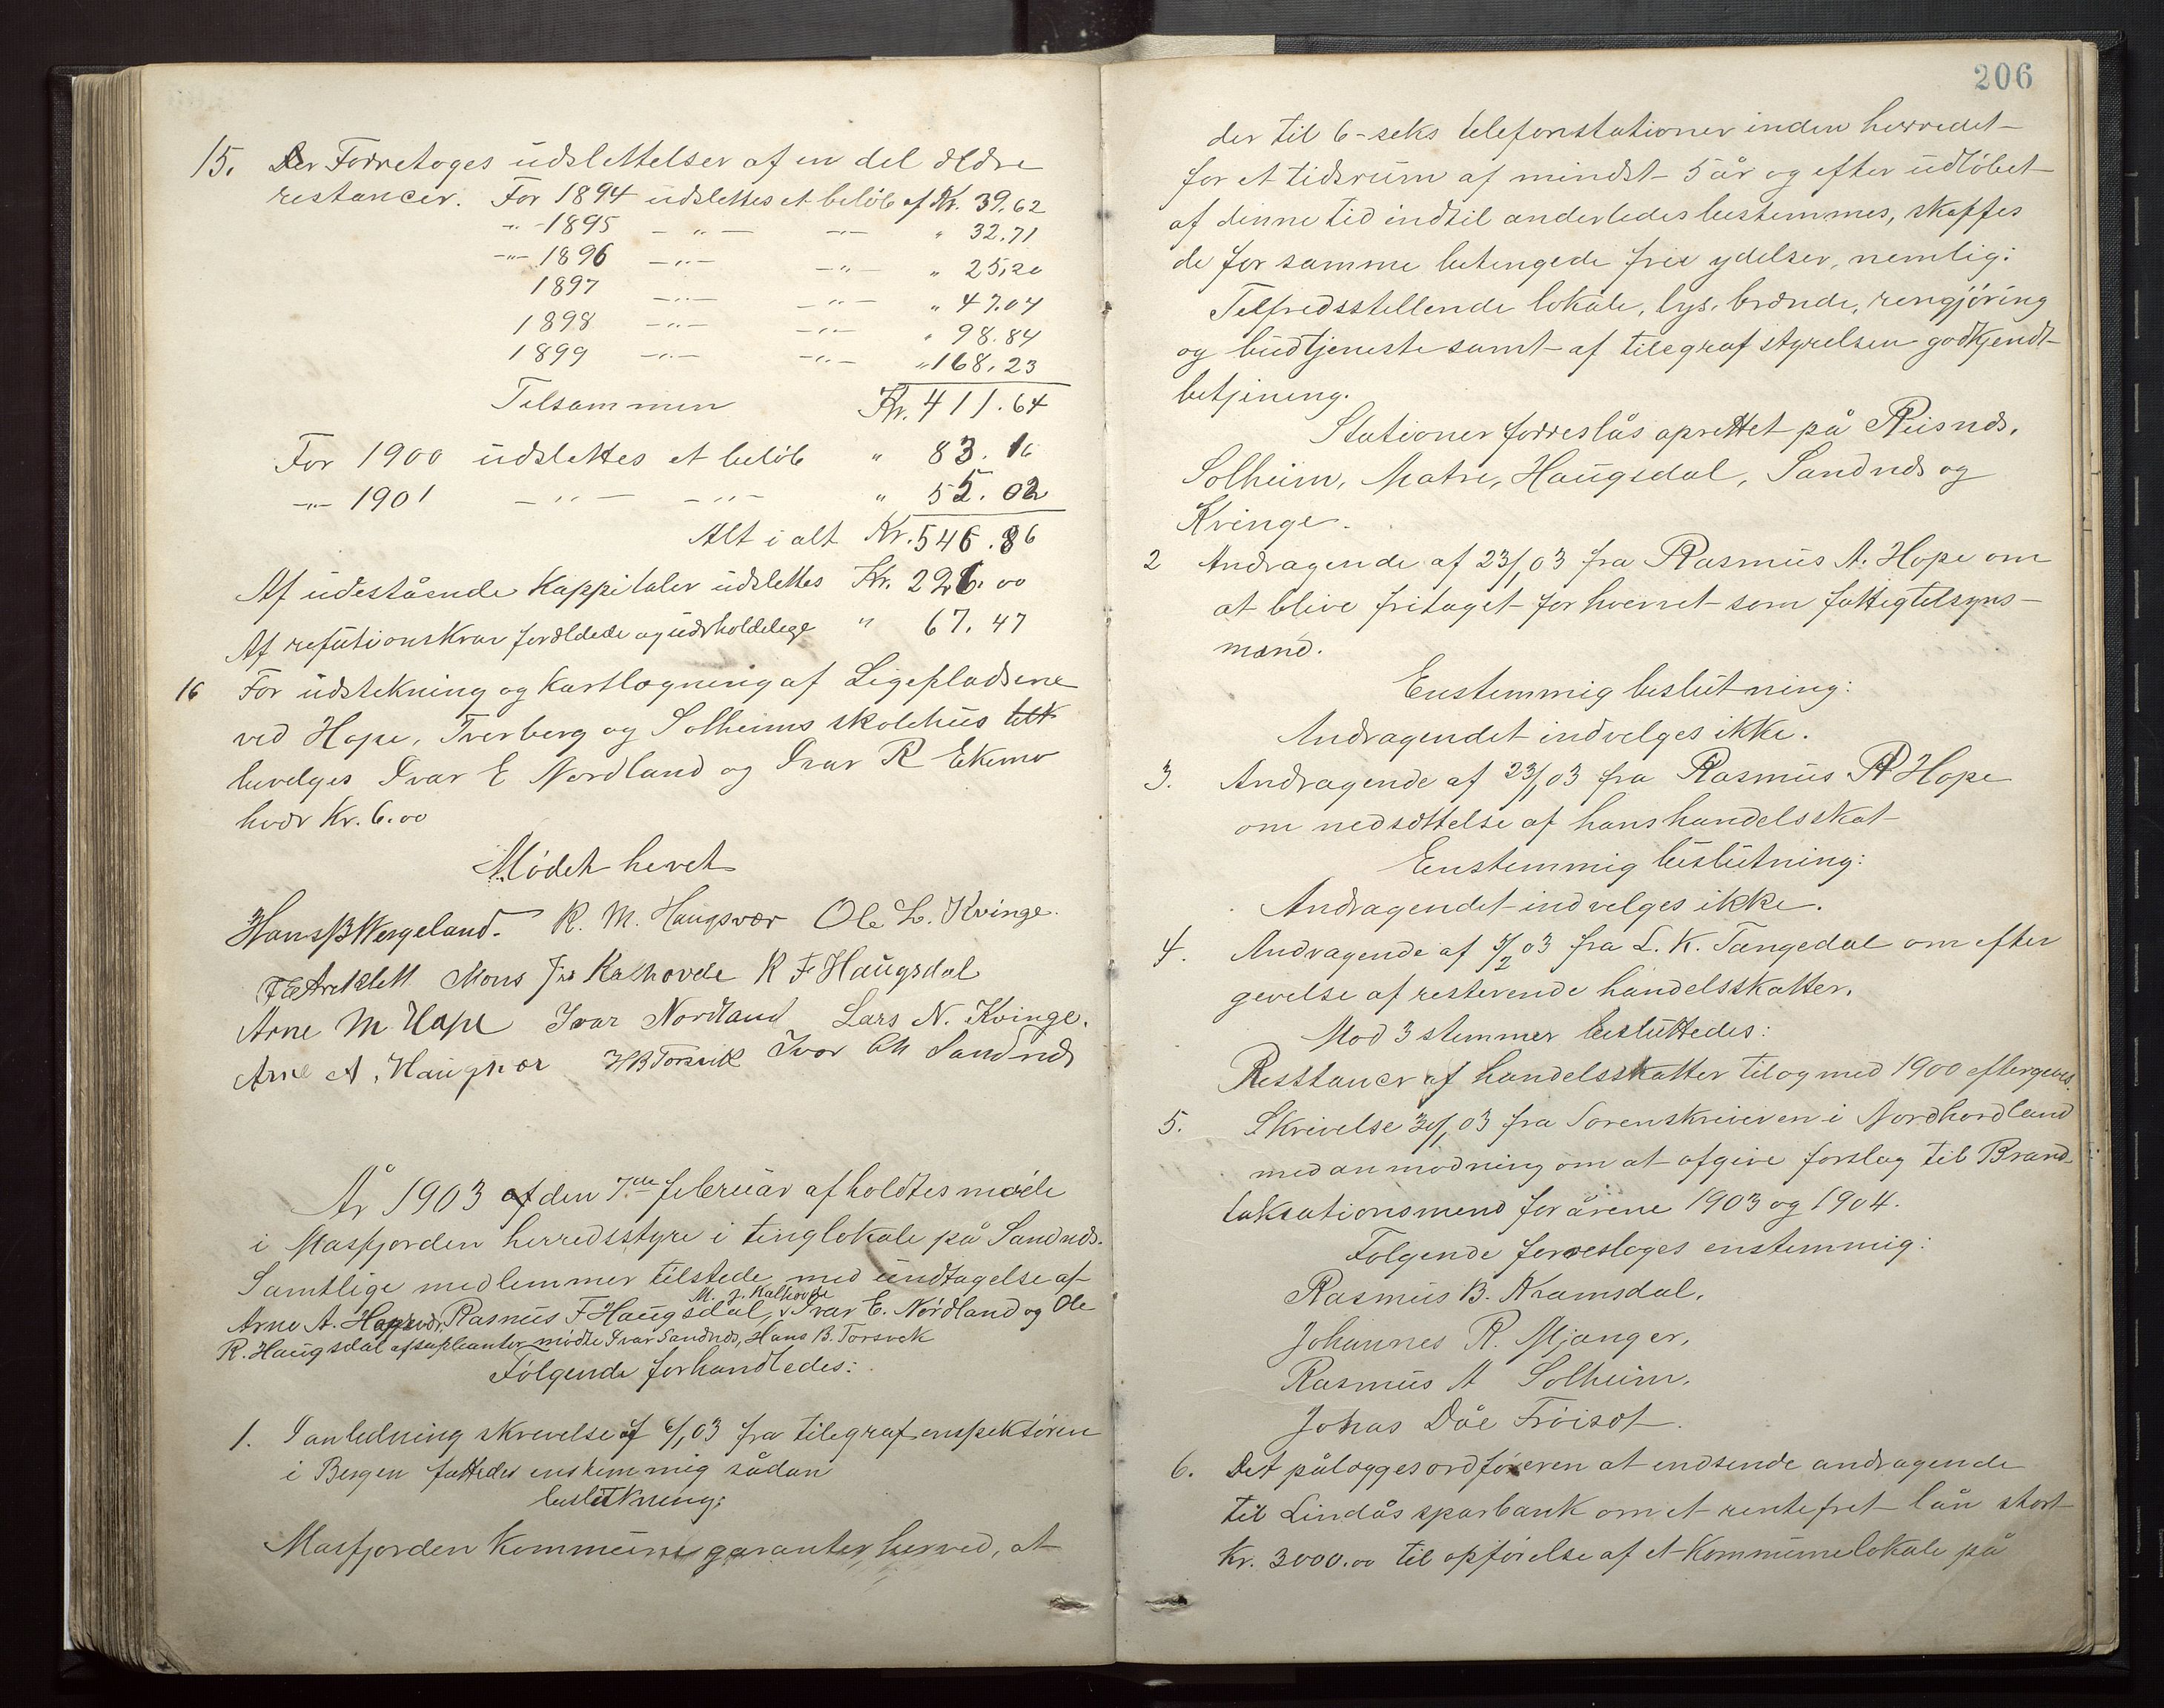 15. Der Forretoges udslettelser af en del ældre
restancer. For 1894 udslettes et beløb af Kr. 39.62
-"- 1895 -"- -"- " 32.71
-"- 1896 -"- -"- " 25.20
1897 -"- -"- " 47.04
1898 -"- -"- " 98.84
1899 -"- -"- " 168.23
Tilsammen Kr. 411.64
For 1900 udslettes et beløb " 83.16
-"- 1901 -"- -"- " 52.02
Alt i alt Kr. 546.86
Af udestående Kappitaler udslettes Kr. 226.00
Af refutionskrav forældede og uerholdelege " 67.47
16 For udstekning og Kartlægning af Ligepladsene
ved Hope, Tverberg og Solheims skolehus
bevelges Ivar E Nordland og Ivar R Ekemo
hvær Kr. 6.00
Mødet hevet
Hans B Wergeland. R. M. Haugsvær Ole L. Kvinge.
Mons Js Kalhovde R F Haugsdal
Arne M Hope Ivar Nordland Lars N. Kvinge.
Arne A. Haugsvær H B Torsvik Ivar Sandnæs
År 1903 den 7de februar afholdtes møde
i Masfjorden herredsstyre i tinglokale på Sandnæs.
Samtlige medlemmer tilstede med undtagelse af
M. J. Kalhovde
Arne A. Haugsvær, Rasmus F Haugsdal, Ivar E. Nordland og Ole
R. Haugsdal af supleanter mødte Ivar Sandnæs, Hans B. Torsvek
Følgende forhandledes:
1. I anledning skrevelse af 6/1 03 fra telegrafenspektøren
i Bergen fattedes enstemmig sådan
beslutning:
Masfjorden Kommune garanter herved, at
206
der til 6-seks telefonstationer inden herredet
for et tidsrum af mindst 5 år og efter udløbet
af denne tid indtil anderledes bestemmes, skaffes
de for samme betengede frie ydelser, nemlig:
Telfredsstillende lokale, lys, brænde, rengjøring
og budtjeneste samt af telegrafstyrelsen godkjendt
betjening.
Stationer forreslås oprettet på Risnæs,
Solheim, Matre, Haugsdal, Sandnæs og
Kvinge.
2 Andragende af 23/1 03 fra Rasmus A. Hope om
at blive fritaget for hvervet som fattigtelsyns-
mænd.
Enstemmig beslutning:
Andragendet indvelges ikke.
3. Andragende af 23/1 03 fra Rasmus R Hope
om nedsættelse af hans handelsskat
Enstemmig beslutning:
Andragendet indvelges ikke.
4. Andragende af /2 03 fra L. K. Tangedal om efter
gevelse af resterende handelsskatter.
Mod 3 stemmer besluttedes:
Resttancer af handelsskatter til og med 1900 eftergeves.
5. Skrivelse 30/1 03 fra Sorenskriveren i Nordhordland
med anmodning om at afgive forslag til Brand-
taksationsmend for årene 1903 og 1904.
Følgende forresloges enstemmig:
Rasmus B. Kramsdal,
Johannes R. Mjanger,
Rasmus A Solheim,
Johas Daae Frøiset.
6. Det pålægges ordføreren at endsende andragende
til Lindås sparbank om et rentefrit lån stort
Kr. 3000.00 til opførelse af et Kommunelokale på